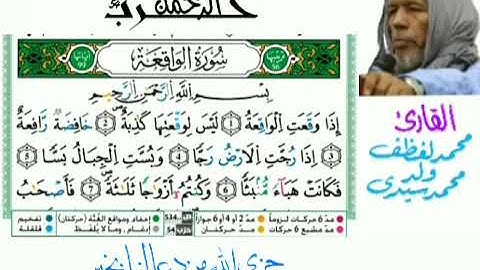 سُورَةُ الوَاقِعَةِ
بِسْمِ اللَّهِ الرَّحْمَٰنِ الرَّحِيمِ
إِذَا وَقَعَتِ الْوَاقِعَةُ 1 لَيْسَ لِوَقْعَتِهَا كَاذِبَةٌ 2 خَافِضَةٌ رَّافِعَةٌ
3 إِذَا رُجَّتِ الْأَرْضُ رَجًّا 4 وَبُسَّتِ الْجِبَالُ بَسًّا 5
فَكَانَتْ هَبَاءً مُّنبَثًّا 6 وَكُنتُمْ أَزْوَاجًا ثَلَاثَةً 7 فَأَصْحَابُ
مدّ 6 حركات لزوماً مدّ 2 أو 4 أو 6 جوازاً 534 إخفاء، ومواقع الغُنَّة (حركتان) تفخيم
مدّ مشبع 6 حركات مدّ حركتان إدغام، وما لا يُلفظ قلقلة
القارئ
محمد لفظف
ولد
محمد سيدي
جزى الله من بخير